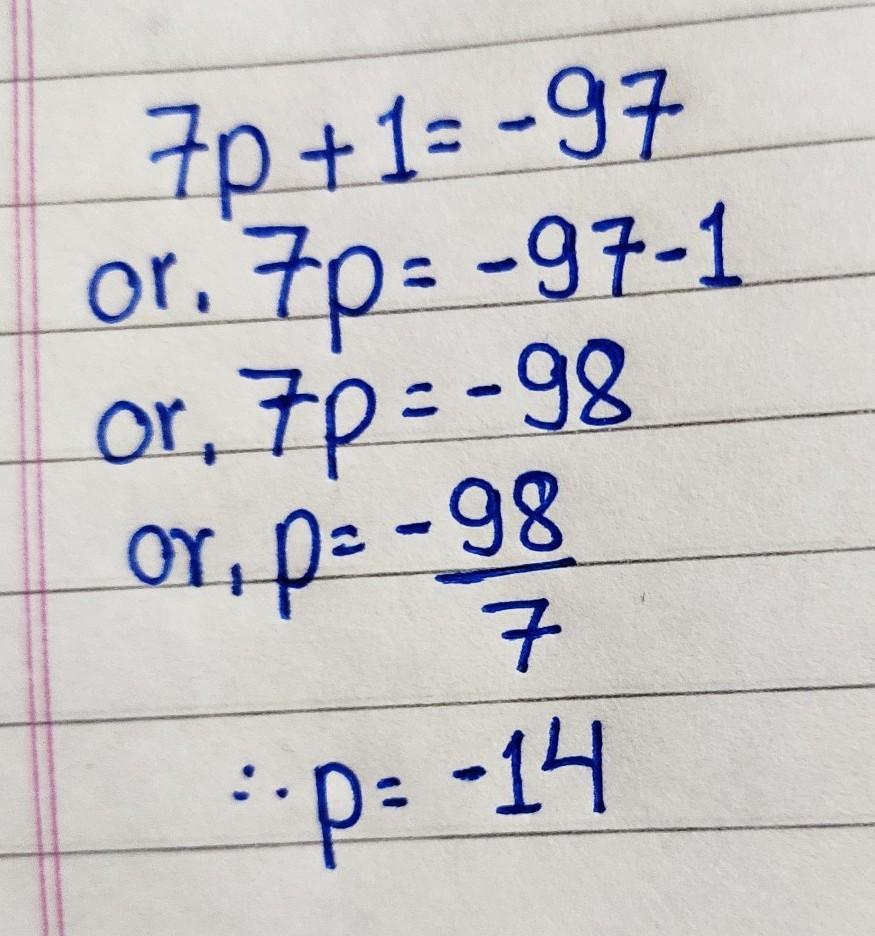 7p + 1 = -97
or. 7p = -97-1
or, 7p = -98
or, p = -98/7
∴ p = -14